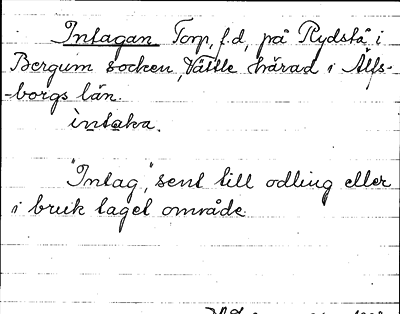 Intagan Torp, f.d., på Rydstä i
Bergum socken, Vättle härad i Älfs-
-borgs län.
intaka.
"Intag," sent till odling eller
i bruk taget område.